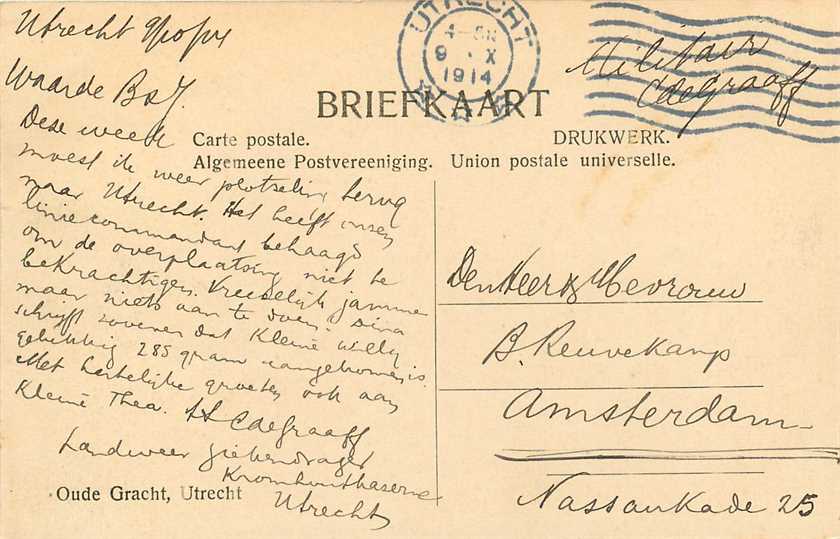 Utrecht
UTRECHT
4-5N
9 . X
1914
Militair
CdeGraaff
Waarde B & J.
BRIEFKAART
Carte postale. DRUKWERK.
Algemeene Postvereeniging. Union postale universelle.
Deze week
moest ik weer plotseling terug
naar Utrecht. Het heeft onzen
liniecommandant behaagd
om de overplaatsing niet te
bekrachtigen. Vreeselijk jammer
maar niets aan te doen. Dina
schrijft zooeven dat kleine Willy
gelukkig 285 gram aangekomen is.
Met hartelijke groeten ook aan
kleine Thea. tt CdeGraaff
Landweer ziekendrager
Kromhoutkaserne
Utrecht
Oude Gracht, Utrecht
Den Heer & Mevrouw
B. Reuvekamp
Amsterdam
Nassaukade 25